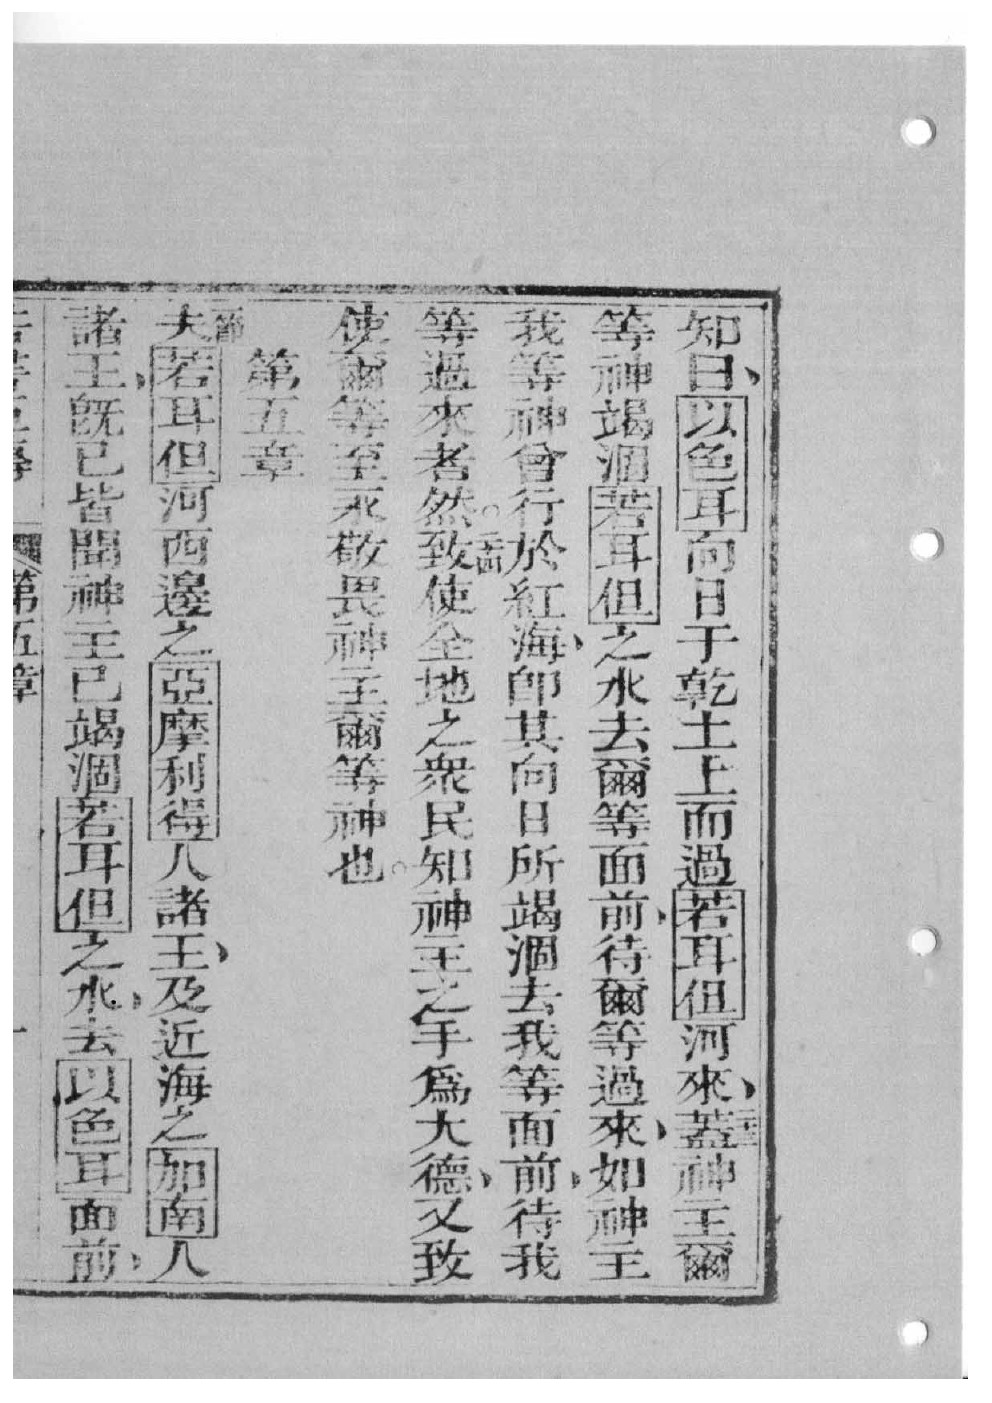 知曰、以色耳向日于乾土上而過若耳但河來、蓋神主爾
等神竭涸若耳但之水去爾等面前、待爾等過來、如神主
我等神曾行於紅海、即其向日所竭涸去我等面前、待我
等過來者然。致使全地之衆民知神主之手爲大德、又致
使爾等至永敬畏神主爾等神也。
第五章
夫若耳但河西邊之亞摩利得人諸王、及近海之加南人
諸王、既已皆聞神主已竭涸若耳但之水、去以色耳面前、
第五章